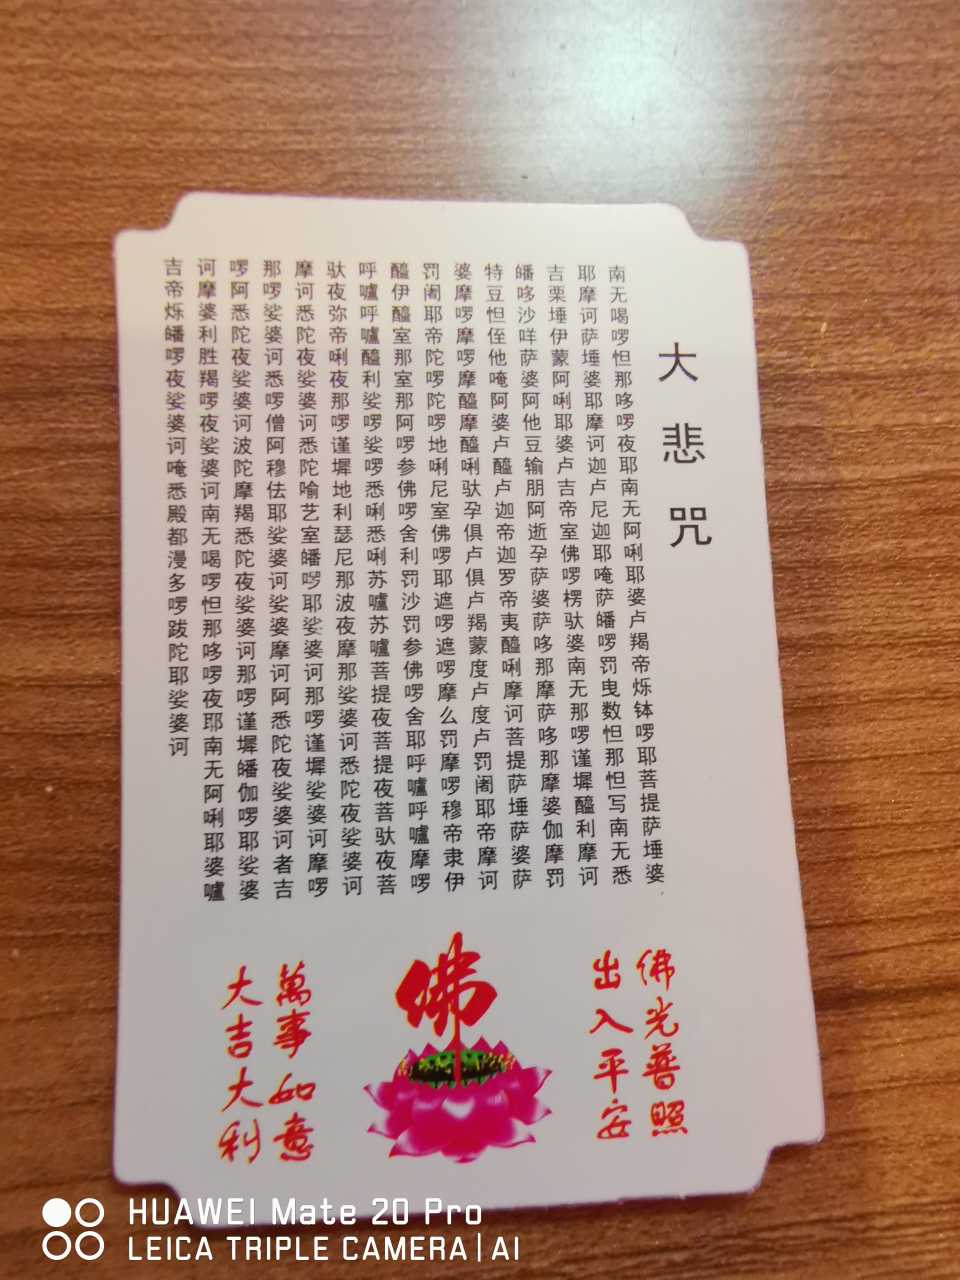 大悲咒
南无喝啰怛那哆啰夜耶南无阿唎耶婆卢羯帝烁钵啰耶菩提萨埵婆
耶摩诃萨埵婆耶摩诃迦卢尼迦耶唵萨皤啰罚曳数怛那怛写南无悉
吉栗埵伊蒙阿唎耶婆卢吉帝室佛啰楞驮婆南无那啰谨墀醯利摩诃
皤哆沙咩萨婆阿他豆输朋阿逝孕萨婆萨哆那摩萨哆那摩婆伽摩罚
特豆怛侄他唵阿婆卢醯卢迦帝迦罗帝夷醯唎摩诃菩提萨埵萨婆萨
婆摩啰摩啰摩醯摩醯唎驮孕俱卢俱卢羯蒙度卢度卢罚阇耶帝摩诃
罚阇耶帝陀啰陀啰地唎尼室佛啰耶遮啰遮啰摩么罚摩啰穆帝隶伊
醯伊醯室那室那阿啰参佛啰舍利罚沙罚参佛啰舍耶呼嚧呼嚧摩啰
呼嚧呼嚧醯利娑啰娑啰悉唎悉唎苏嚧苏嚧菩提夜菩提夜菩驮夜菩
驮夜弥帝唎夜那啰谨墀地利瑟尼那波夜摩那娑婆诃悉陀夜娑婆诃
摩诃悉陀夜娑婆诃悉陀喻艺室皤啰耶娑婆诃那啰谨墀娑婆诃摩啰
那啰娑婆诃悉啰僧阿穆佉耶娑婆诃娑婆摩诃阿悉陀夜娑婆诃者吉
啰阿悉陀夜娑婆诃波陀摩羯悉陀夜娑婆诃那啰谨墀皤伽啰耶娑婆
诃摩婆利胜羯啰夜娑婆诃南无喝啰怛那哆啰夜耶南无阿唎耶婆嚧
吉帝烁皤啰夜娑婆诃唵悉殿都漫多啰跋陀耶娑婆诃
佛光普照
出入平安
佛
萬事如意
大吉大利
HUAWEI Mate 20 Pro
LEICA TRIPLE CAMERA | AI